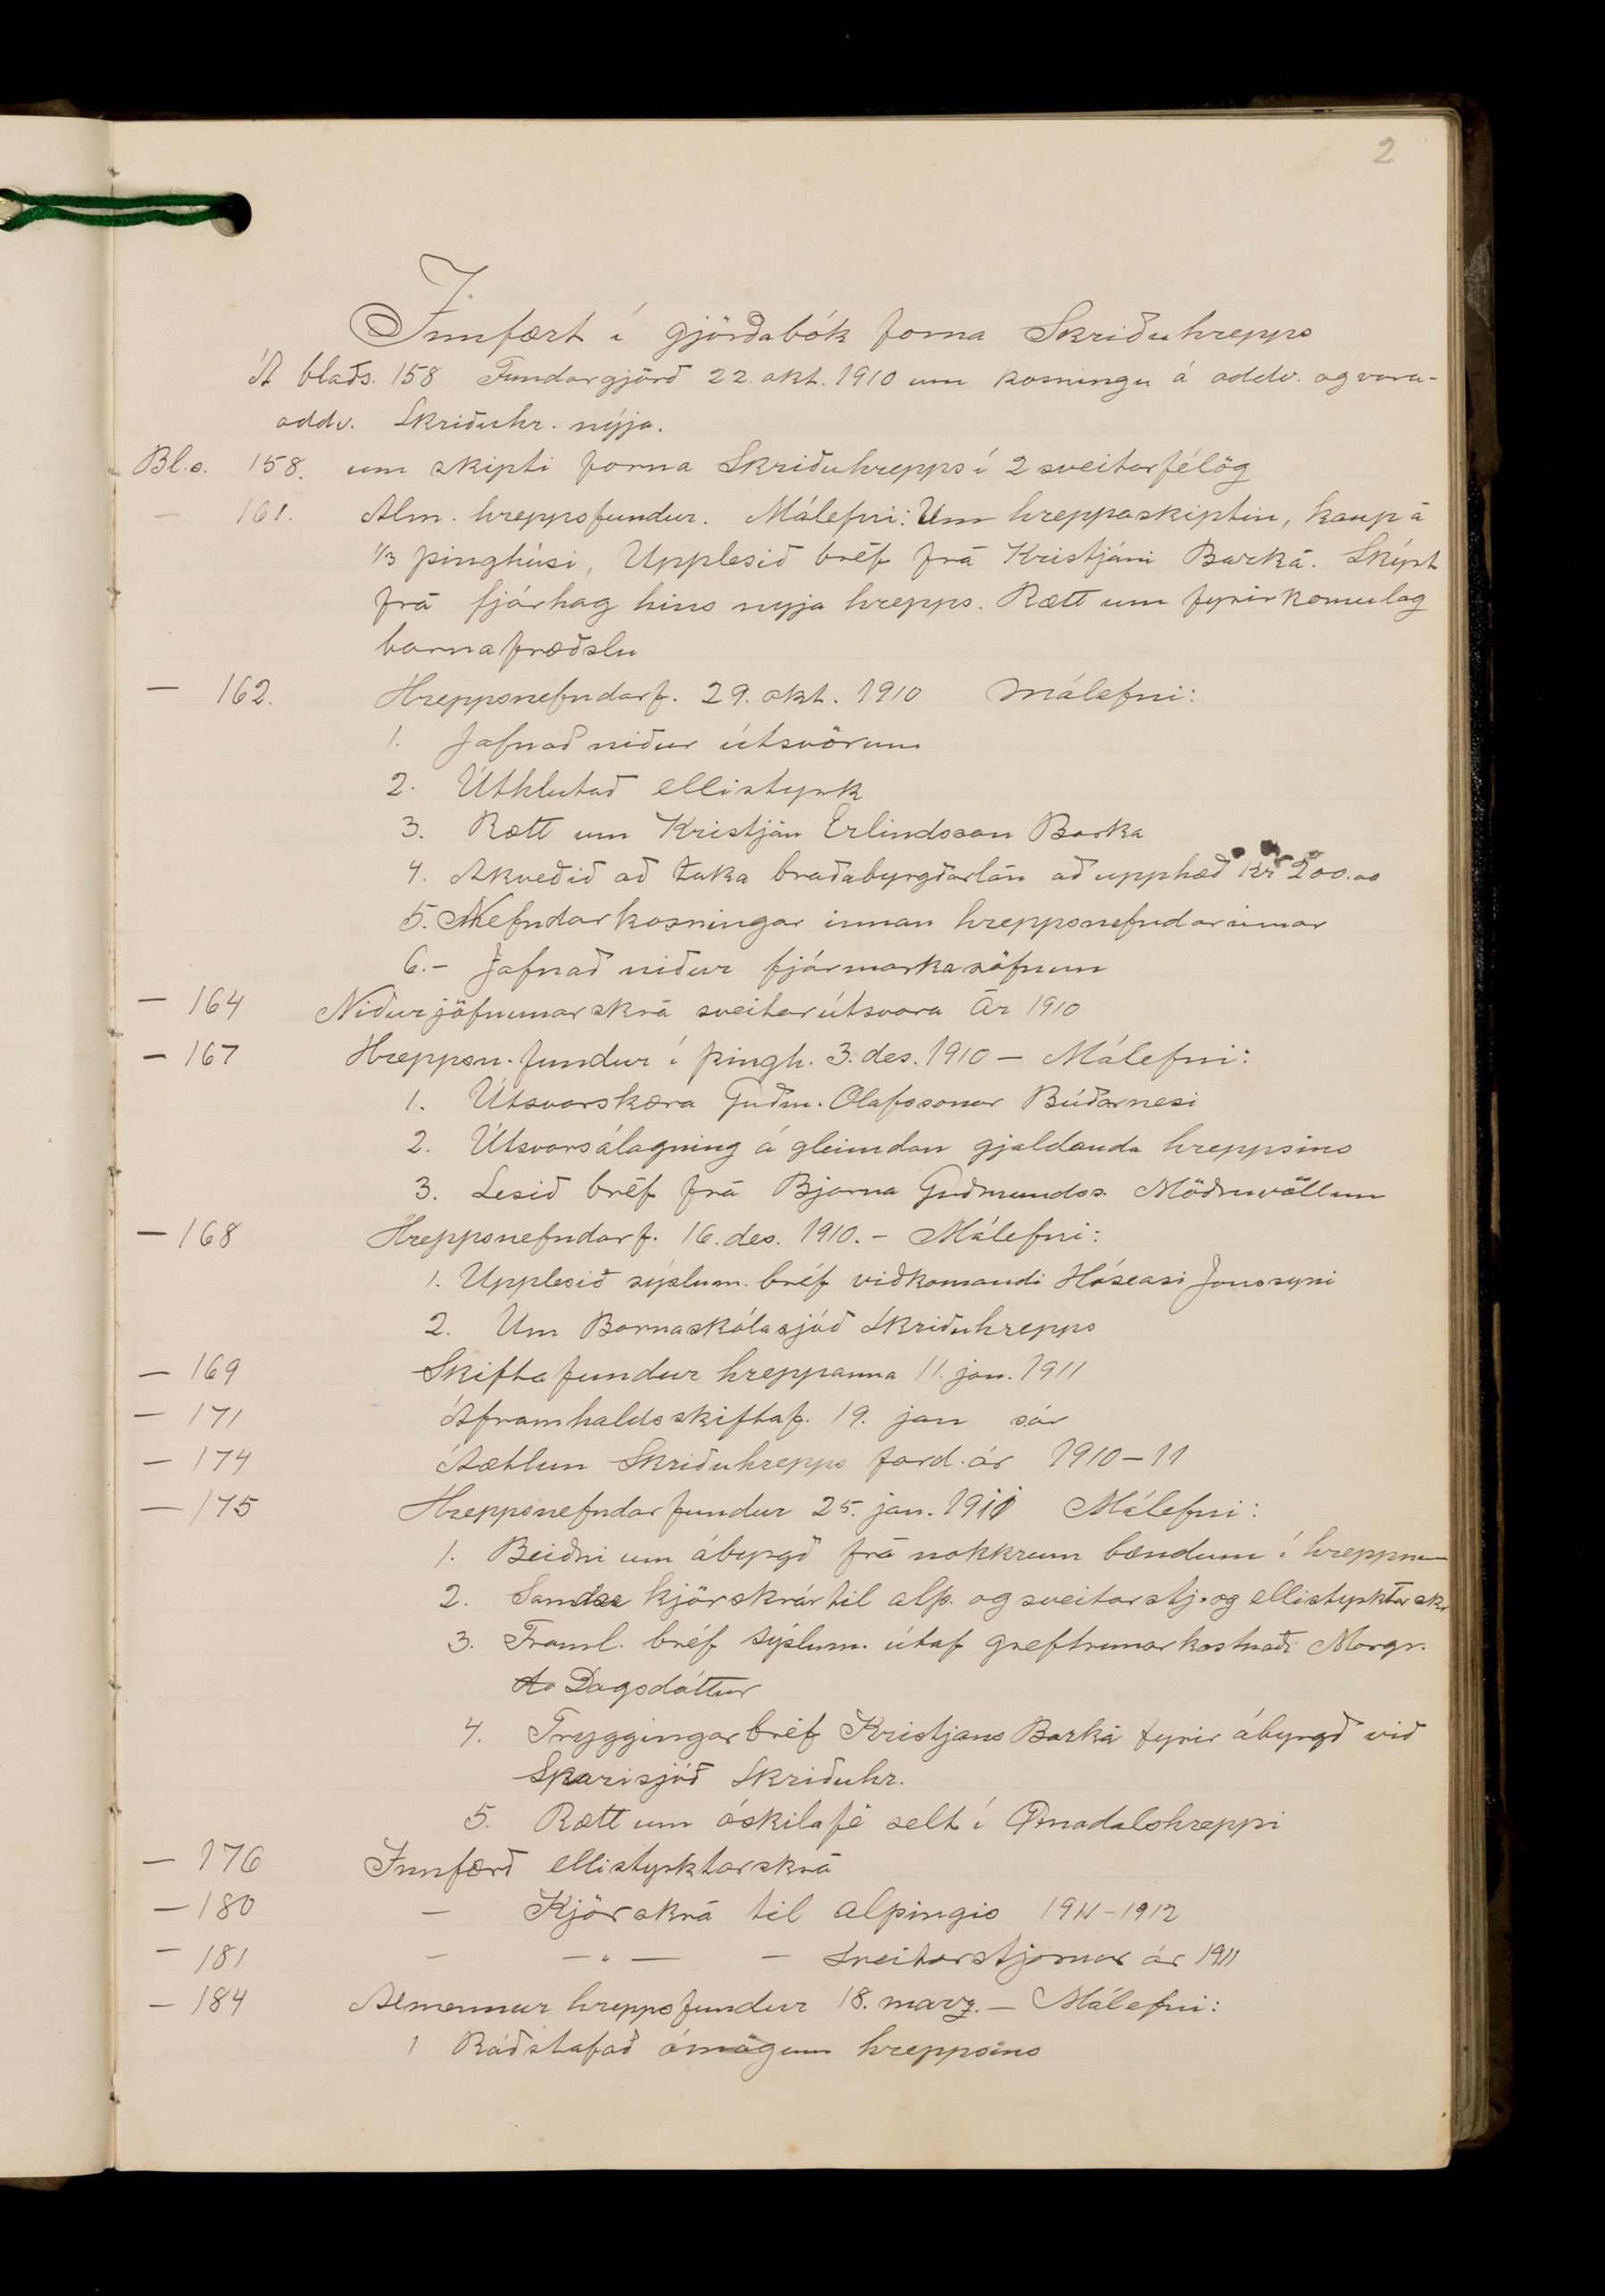 2
Innfært í gjörðabók forna Skriðuhrepps
Á blaðs. 158 Fundargjörð 22. okt. 1910 um kosningu á oddv. og vara-
oddv. Skriðuhr. nýja.
Bl.s. 158. um skipti forna Skriðuhrepps í 2 sveitarfélög
— 161. Alm. hreppsfundur. Málefni: Um hreppaskiptin, kaup á
1/3 þinghúsi, Upplesið bréf frá Kristjáni Barká. Skýrt
frá fjárhag hins nyja hrepps. Rætt um fyrirkomulag
barnafræðslu
— 162. Hreppsnefndarf. 29. okt. 1910 Málefni:
1. Jafnað niður útsvörum
2. Úthlutað ellistyrk
3. Rætt um Kristján Erlindsson Barka
4. Akveðið að taka braðabyrgðarlán að upphæð Kr 200.00
5. Nefndarkosningar innan hreppsnefndarinnar
6.- Jafnað niður fjármarkasöfnum
— 164 Niðurjöfnunarskrá sveitarútsvara Ár 1910
— 167 Hreppsn. fundur í þingh. 3. des. 1910 — Málefni:
1. Útsvarskæra Guðm. Olafssonar Búðarnesi
2. Útsvarsálagning á gleimdan gjaldanda hreppsins
3. Lesið bréf frá Bjarna Guðmundss. Möðruvöllum
— 168 Hreppsnefndarf. 16. des. 1910. - Málefni:
1. Upplesið sýslum. bréf viðkomandi Hóseasi Jonssyni
2. Um Barnaskólasjóð Skriðuhrepps
— 169 Skiftafundur hreppanna 11. jan. 1911
— 171 Áframhaldsskiftaf. 19. jan s.ár
— 174 Áætlun Skriðuhrepps fard. ár 1910-11
— 175 Hreppsnefndarfundur 25. jan. 1911 Málefni:
1. Beiðni um ábyrgð frá nokkrum bændum í hreppnum
2. Samdar kjörskrár til alþ. og sveitarstj. og ellistyrktarskr
3. Framl. bréf sýslum. útaf greftrunarkostnaði Margr.
Dagsdóttur
4. Tryggingarbréf Kristjans Barká fyrir ábyrgð við
Sparisjóð Skriðuhr.
5. Rætt um óskilafé selt í Öxnadalshreppi
— 176 Innfærð ellistyrktarskrá
— 180 — Kjörskrá til alþingis 1911-1912
— 181 — — " — — Sveitarstjornar ár 1911
— 184 Almennur hreppsfundur 18. marz. — Málefni:
1 Ráðstafað ómögum hreppsins